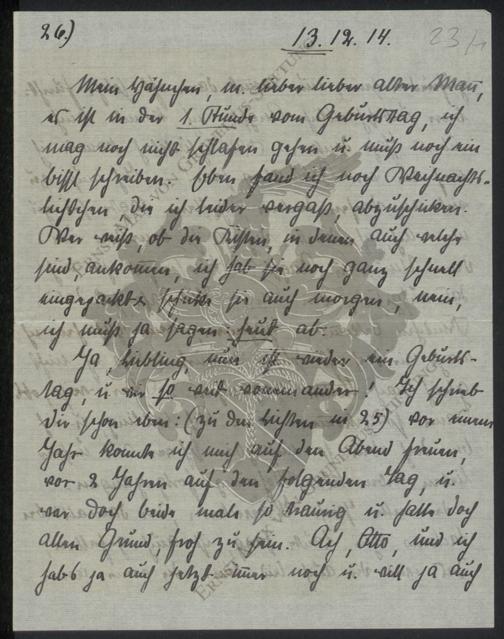 26.)
13.12.14.
23/1
Mein Hähnchen, m. lieber lieber alter Mañ,
es ist in der 1. Stunde vom Geburtstag, ich
mag noch nicht schlafen gehen u. muß noch ein
bissl schreiben. Eben fand ich noch Weihnachts-
lichtchen die ich leider vergaß, abzuschicken.
Wer weiß, ob die Kisten, in denen auch welche
sind, ankom̄en, ich hab sie noch ganz schnell
eingepackt u. schicke sie auch morgen, nein,
ich muß ja sagen: heut ab.
Ja, Liebling, nun ist wieder ein Geburts-
tag, u. wir so weit voneinander! Ich schrieb
dir schon eben: (zu den Lichten in 25) vor einem
Jahr konnte ich mich auf den Abend freuen,
vor 2 Jahren auf den folgenden Tag, u.
war doch beide male so traurig u. hatte doch
allen Grund, froh zu sein. Ach, Otto, und ich
hab's ja auch jetzt im̄er noch u. will ja auch